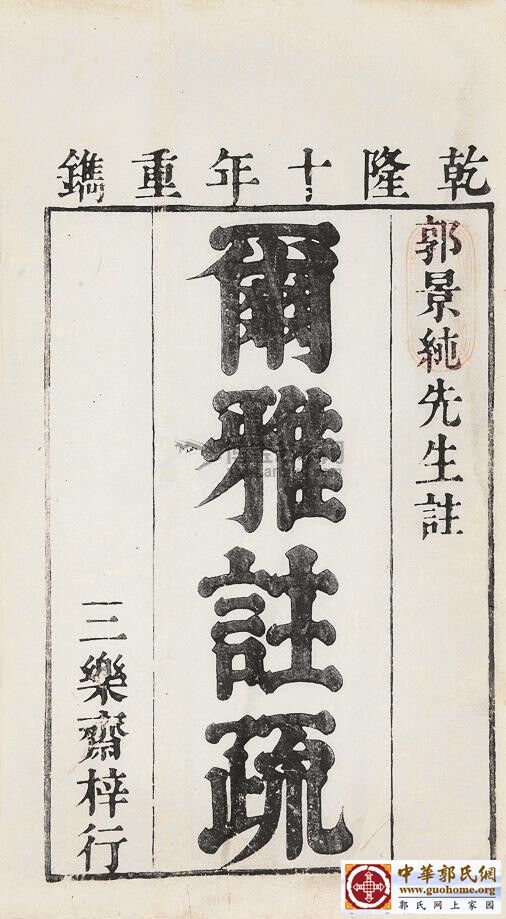 乾隆十年重鐫
郭景純先生註
爾雅註疏
三樂齋梓行
中華郭氏網
www.guohome.org
郭氏网上家园